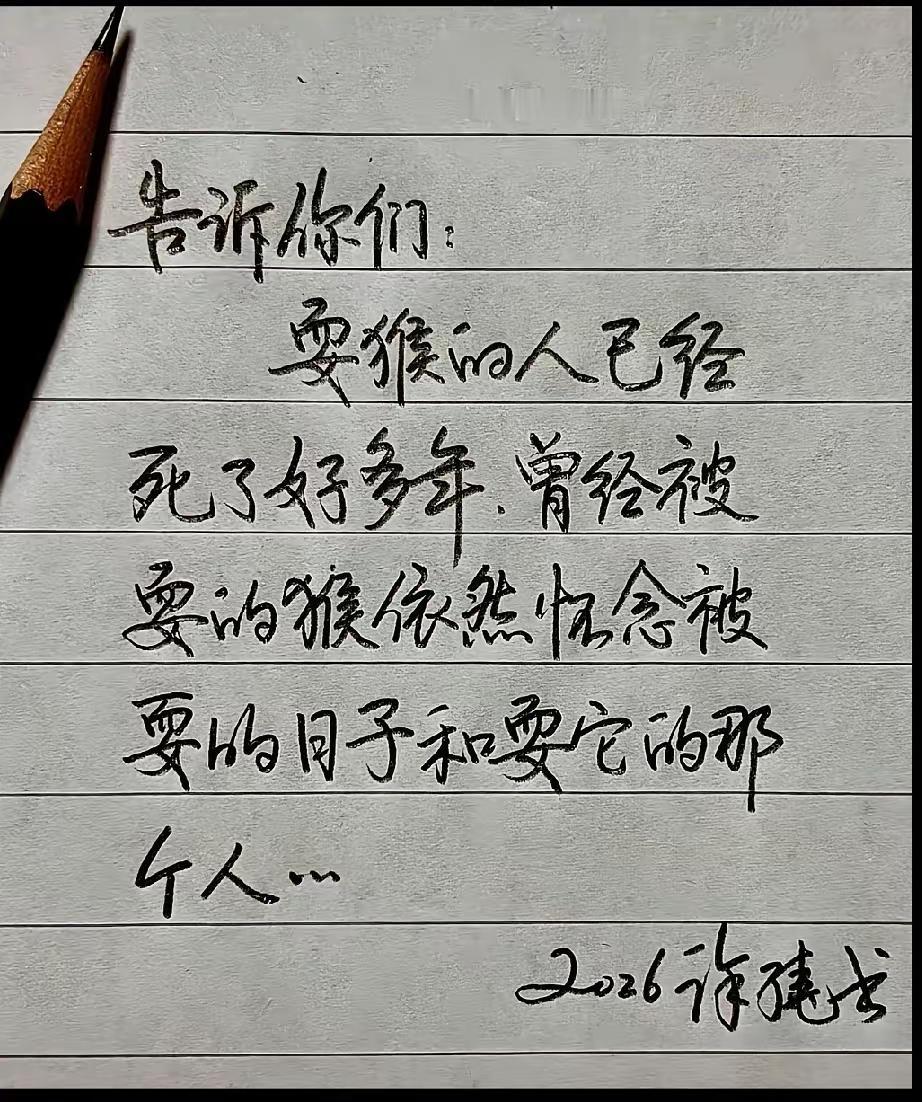 告诉你们：
耍猴的人已经
死了好多年.曾经被
耍的猴依然怀念被
耍的日子和耍它的那
个人…
2026 书